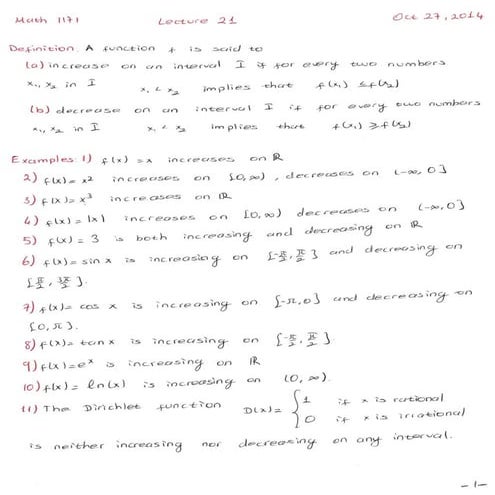 Math 1171 Lecture 21 Oct 27, 2014
Definition: A function f is said to
(a) increase on an interval I if for every two numbers
x₁, x₂ in I x₁ < x₂ implies that f(x₁) ≤ f(x₂)
(b) decrease on an interval I if for every two numbers
x₁, x₂ in I x₁ < x₂ implies that f(x₁) ≥ f(x₂)
Examples: 1) f(x) = x increases on ℝ
2) f(x) = x² increases on [0, ∞), decreases on (-∞, 0]
3) f(x) = x³ increases on ℝ
4) f(x) = |x| increases on [0, ∞) decreases on (-∞, 0]
5) f(x) = 3 is both increasing and decreasing on ℝ
6) f(x) = sin x is increasing on [-π/2, π/2] and decreasing on
[π/2, 3π/2].
7) f(x) = cos x is increasing on [-π, 0] and decreasing on
[0, π].
8) f(x) = tan x is increasing on [-π/2, π/2]
9) f(x) = eˣ is increasing on ℝ
10) f(x) = ln(x) is increasing on (0, ∞).
11) The Dirichlet function D(x) = { 1 if x is rational
0 if x is irrational
is neither increasing nor decreasing on any interval.
-1-